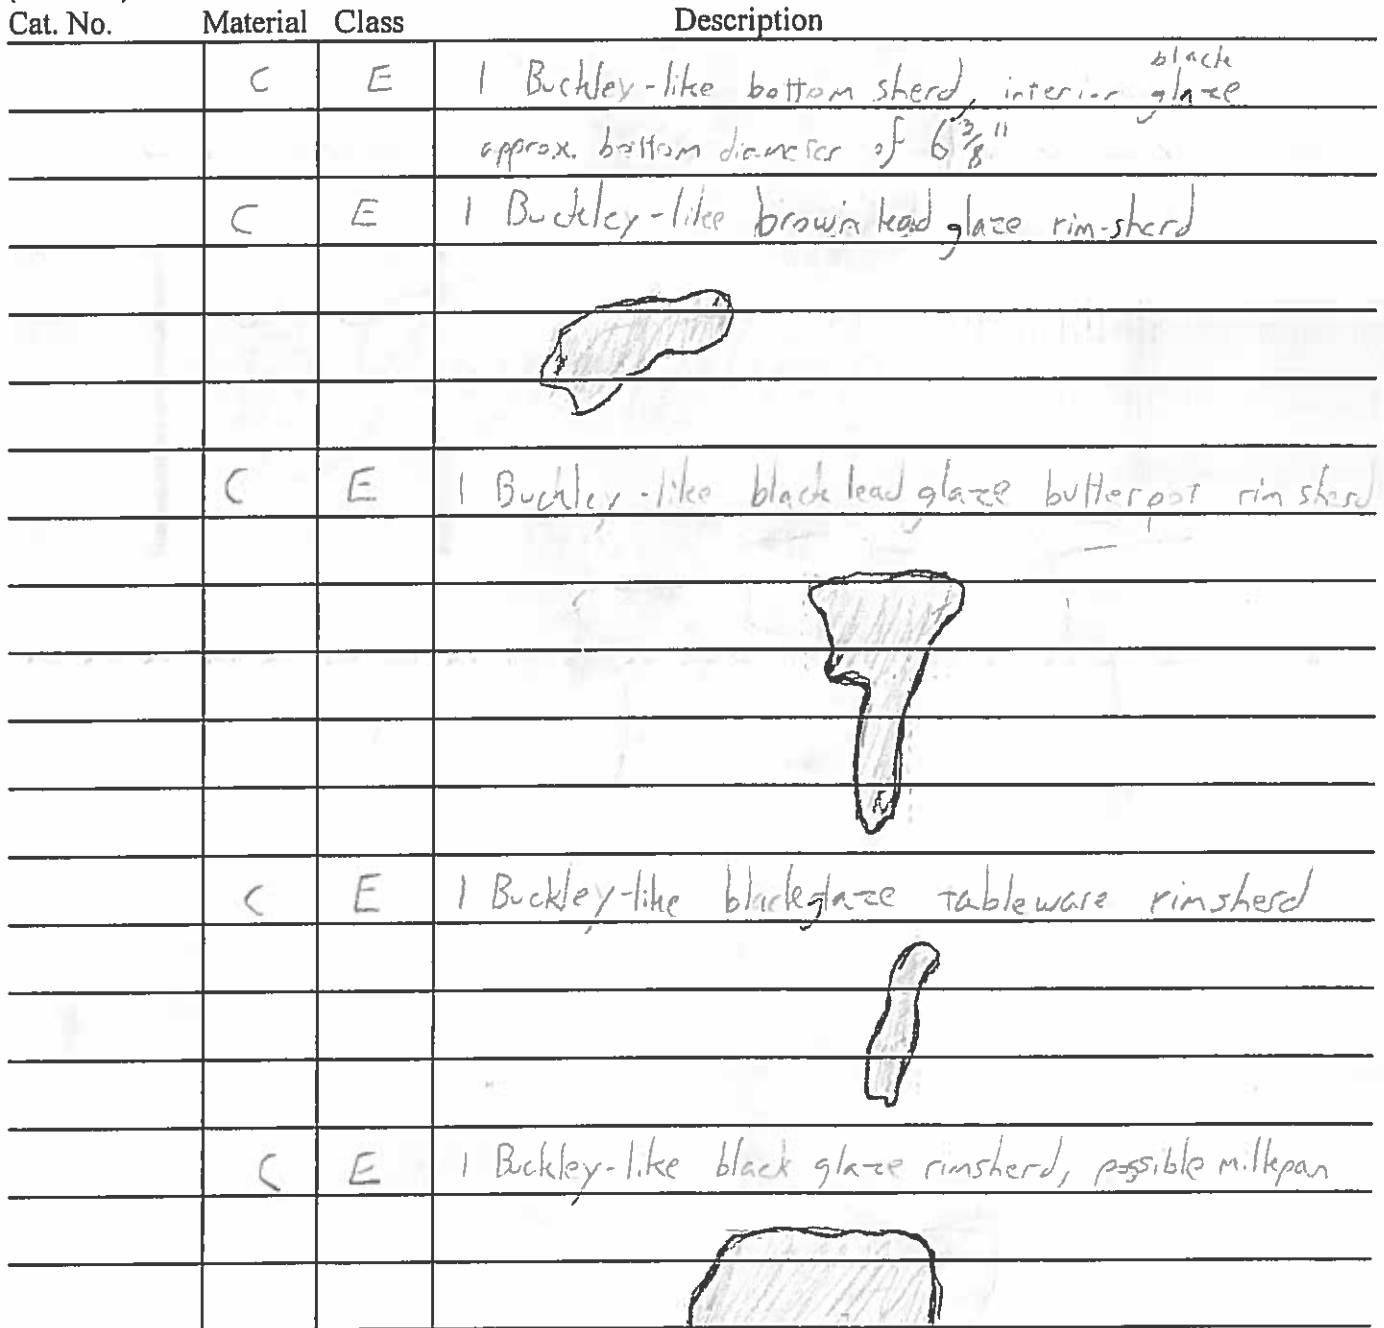 Cat. No. Material Class Description
C E 1 Buckley-like bottom sherd, interior black glaze
approx. bottom diameter of 6 3/8"
C E 1 Buckley-like brown lead glaze rim-sherd
C E 1 Buckley-like black lead glaze butterpot rim sherd
C E 1 Buckley-like black glaze tableware rimsherd
C E 1 Buckley-like black glaze rimsherd, possible milkpan